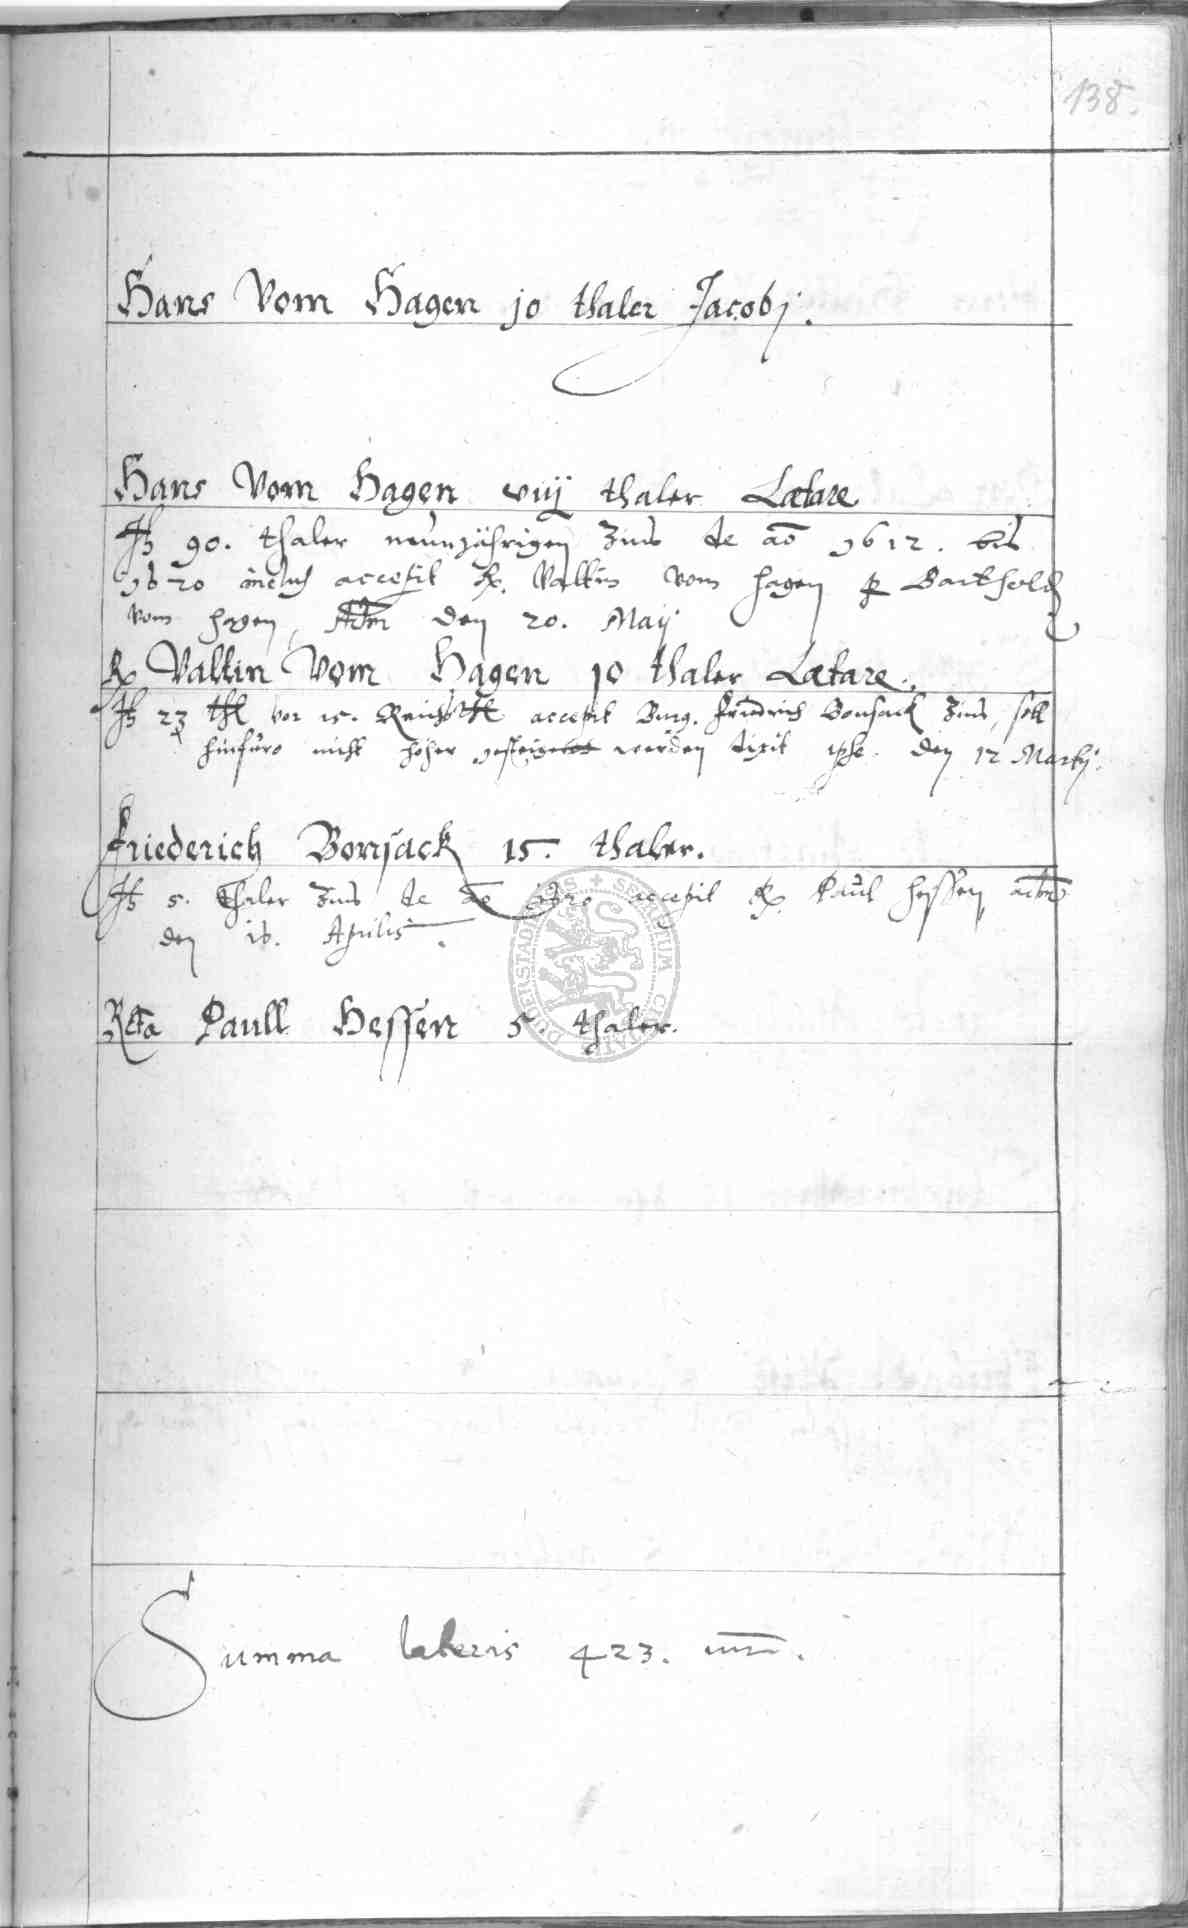 138.
Hans Vom Hagen jo thaler Jacobj.
Hans Vom Hagen viij thaler Lætare
90. thaler neunzährigen Zins de ao 1612. bis
1620 inclus accepit R. Valtin vom hagen p Barthold
vom hagen, Actm den 20. Maij
R Valtin Vom Hagen jo thaler Lætare.
23 thl vor 15. Reichsthl accepit Burg. Friedrich Bonsack Zins, soll
hinfuro nicht höher gesteigert werden dixit ipse. den 12 Martij.
Friederich Bonsack 15. thaler.
5. thaler Zins de ao 1620 accepit R. Paul hessen, actm
den 16. Aprilis.
Rta Paull Hessen 5. thaler.
SECRETUM CIVITATIS DUDERSTADENSIS
Summa lateris 423. mr.